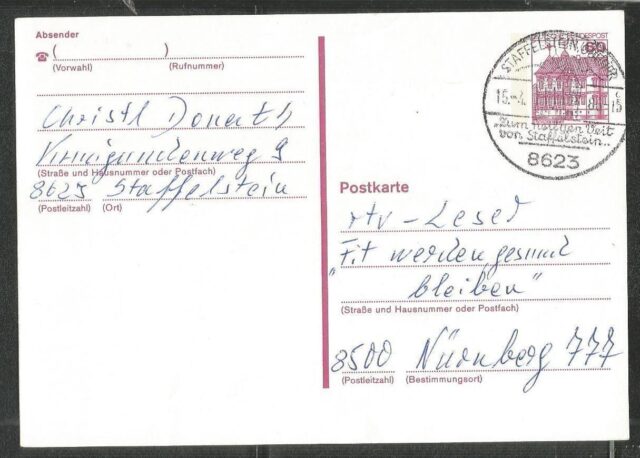 Absender
( )
(Vorwahl) (Rufnummer)
Christl Donath
9
(Straße und Hausnummer oder Postfach)
8623 Staffelstein
(Postleitzahl) (Ort)
60
STAFFELSTEIN
15.-4. 15
"Zum heiligen Veit
von Staffelstein..
8623
Postkarte
rtv-Leser
"Fit werden gesund
bleiben"
(Straße und Hausnummer oder Postfach)
8500 Nürnberg 777
(Postleitzahl) (Bestimmungsort)